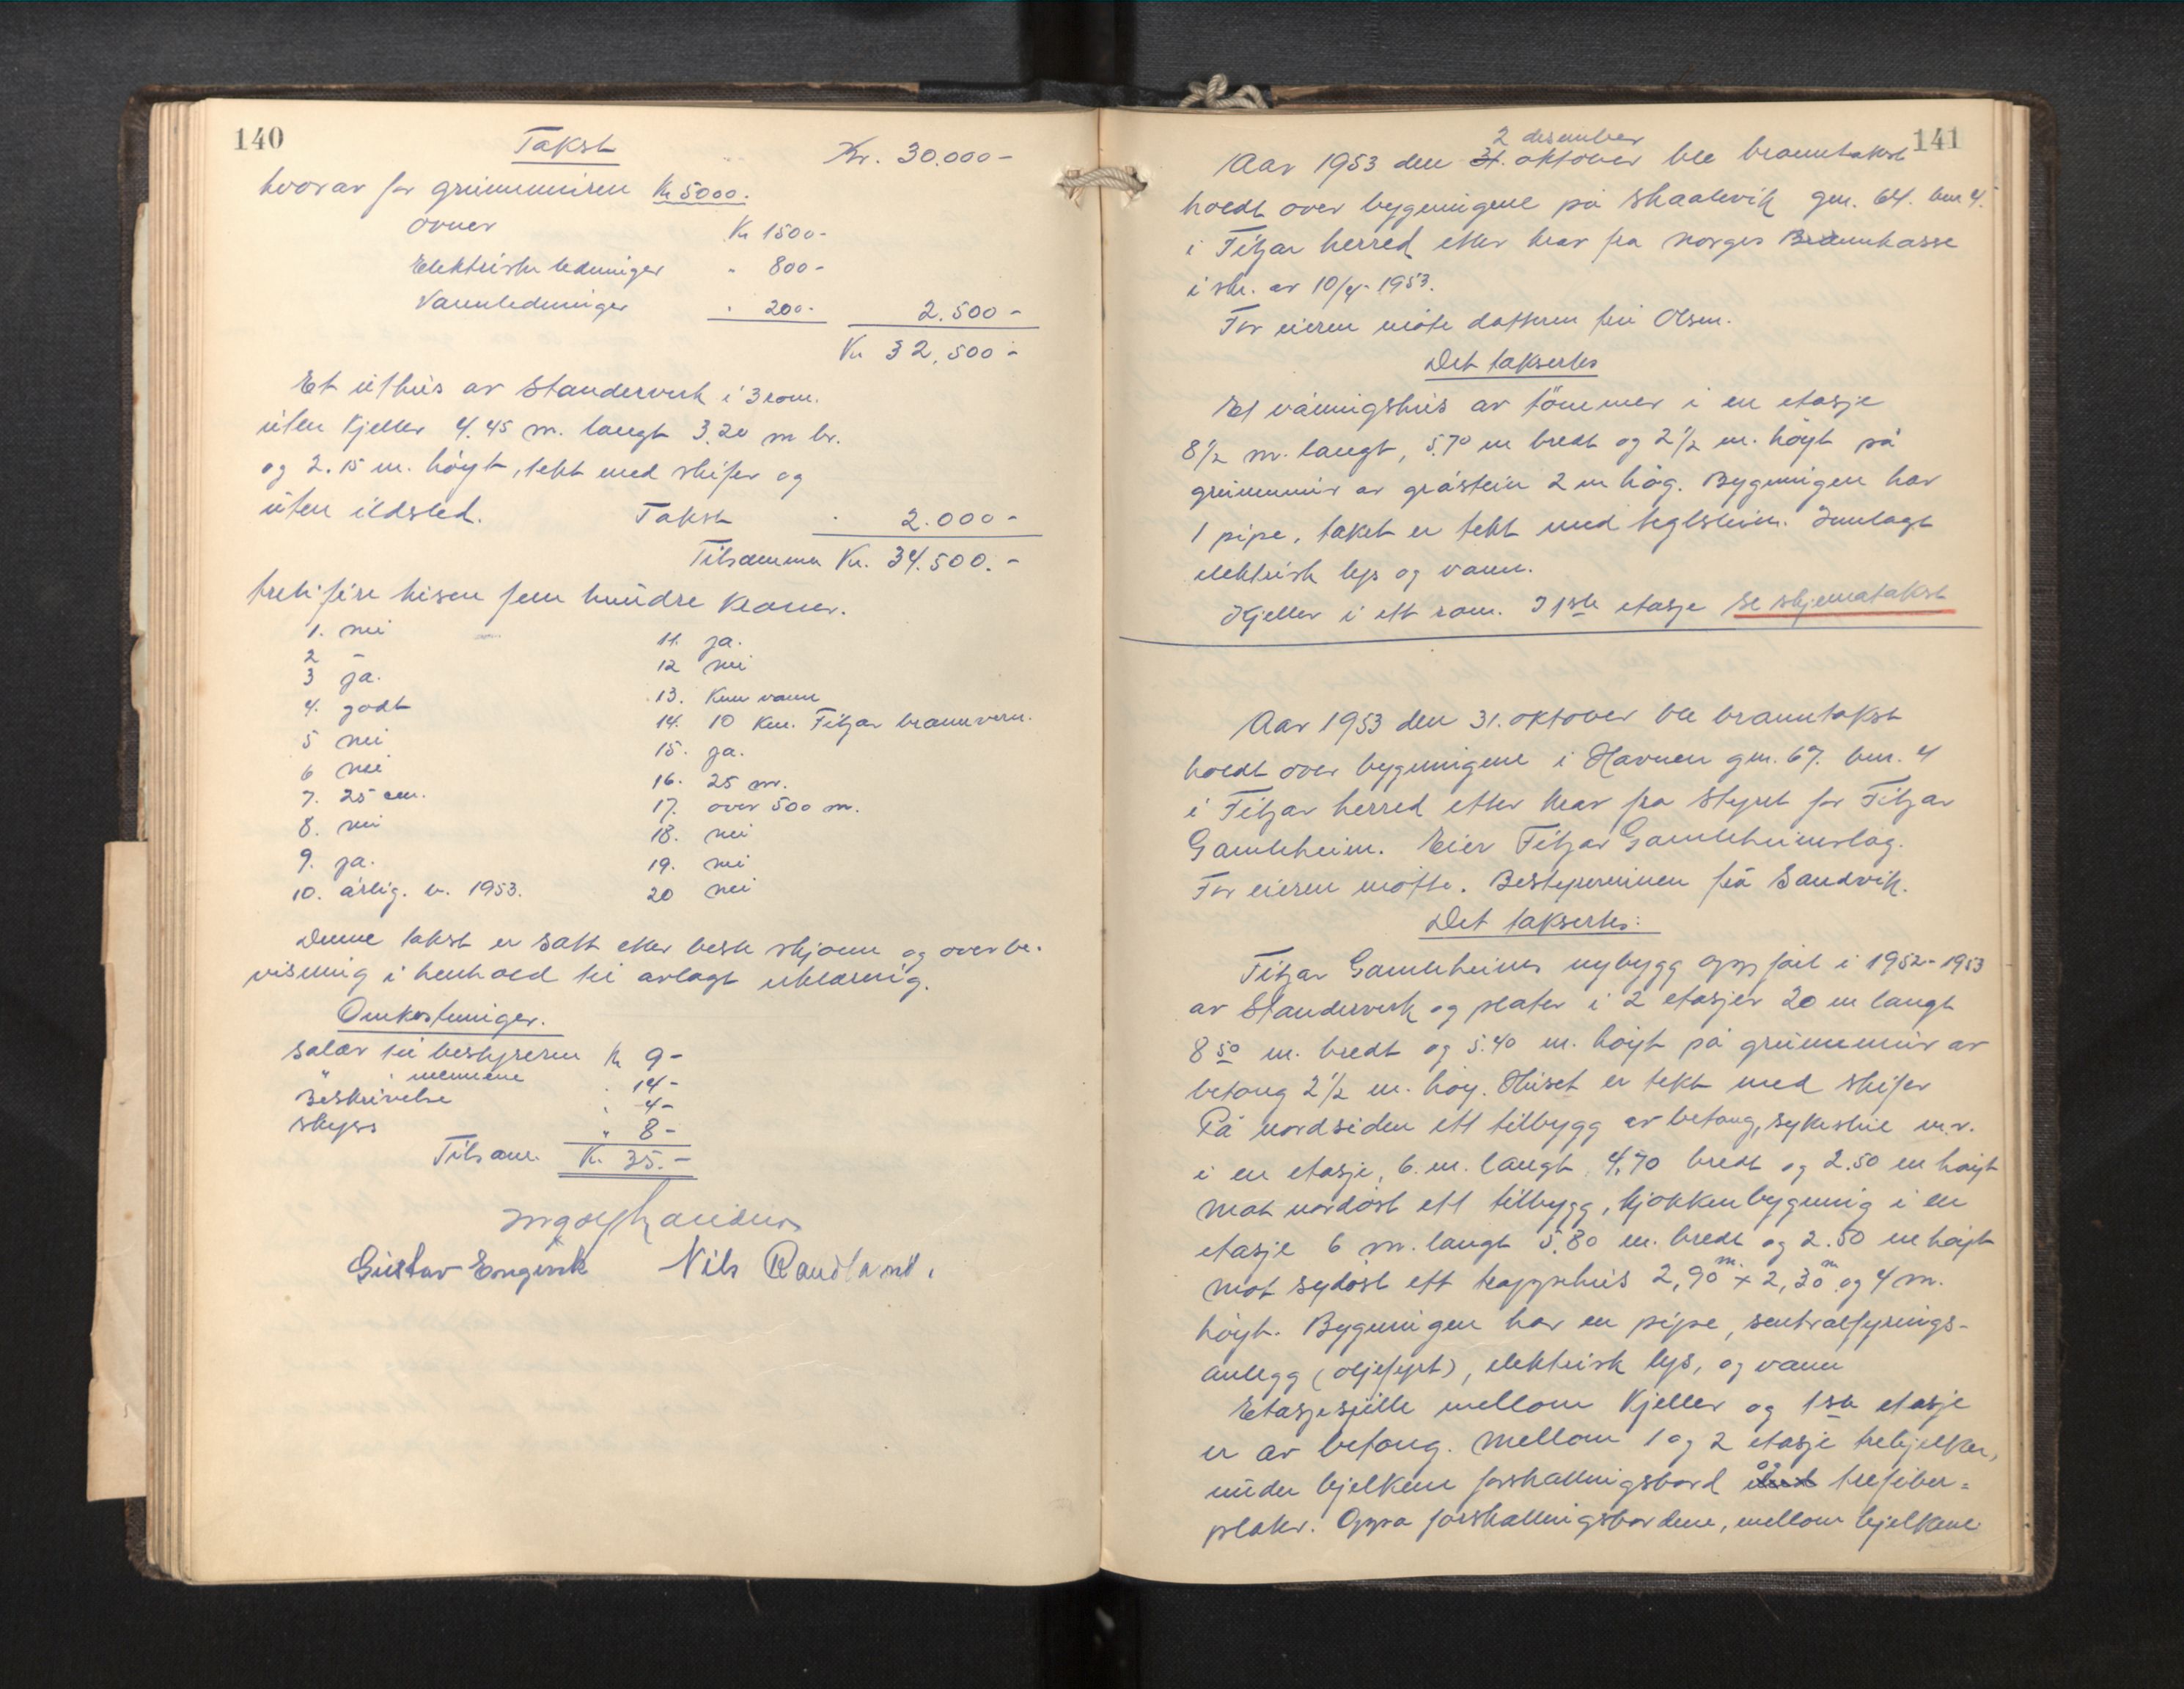 140
Takst Kr. 30.000-
hvorav for grunnmuren Kr 5000.
Ovner Kr 1500-
Elektriske ledninger " 800-
Vannledninger " 200- 2.500-
Kr 32,500-
Et uthus av Standerverk i 3 rom.
uten Kjeller 4.45 m. langt 3.20 m br.
og 2.15 m. høyt, tekt med skifer og
uten ildsted. Takst " 2.000-
Tilsammen Kr. 34.500.-
trettifire tusen fem hundre kroner.
1. nei
2 -
3 ja.
4. godt
5 nei
6 nei
7. 25 cm.
8. nei
9. ja.
10. årlig. v. 1953.
11. ja.
12 nei
13. Kun vann
14. 10 km. Fitjar brannvern.
15. ja.
16. 25 m.
17. over 500 m.
18. nei
19. nei
20 nei
Denne takst er satt etter beste skjønn og overbe-
visning i henhold til avlagt erklæring.
Omkostninger.
Salær til bestyreren Kr 9-
" " mennene " 14-
Beskrivelse " 4-
Skyss " 8-
Tilsam. Kr. 35.-
Gustav Engevik Nils Randland.
141
2 desember
Aar 1953 den 31. oktober ble branntakst
holdt over bygningene på Skaalevik gnr. 64. bnr 4.
i Fitjar herred etter krav fra Norges Brannkasse
i skr. av 10/4-1953.
For eieren møte datteren frü Olsen.
Det taksertes
Et våningshus av tömmer i en etasje
8 1/2 m. langt, 5.70 m bredt og 2 1/2 m. høyt på
grunnmur av gråstein 2 m høg. Bygningen har
1 pipe, taket er tekt med teglstein. Innlagt
elektrisk lys og vann.
Kjeller i ett rom. I 1ste etasje se skjematakst
Aar 1953 den 31. oktober ble branntakst
holdt over bygningene i Havnen gnr. 67. bnr. 4
i Fitjar herred etter krav fra Styret for Fitjar
Gamleheim. Eier Fitjar Gamleheimslag.
For eieren møtte. Bestyrerinnen frå Sandvik.
Det taksertes:
Fitjar Gamleheims nybygg oppført i 1952-1953
av Standerverk og plater i 2 etasjer 20 m langt
8 50 m. bredt og 5.40 m. høyt på grunnmur av
betong 2 1/2 m. høy. Huset er tekt med skifer
På nordsiden ett tilbygg av betong, sykestue m.v.
i en etasje, 6. m. langt 4,70 bredt og 2.50 m høyt
mot nordøst ett tilbygg, kjøkkenbygning i en
etasje 6 m. langt 5.80 m. bredt og 2.50 m høyt
mot sydøst ett trappehus 2,90 m. x 2,30 m. og 4 m.
høyt. Bygningen har en pipe, sentralfyrings-
anlegg (oljefyrt), elektrisk lys, og vann
Etasjesjille mellom Kjeller og 1ste etasje
er av betong. Mellom 1 og 2 etasje trebjelker,
under bjelkene forskallingsbord og trefiber=
plater. Oppå forskallingsbordene, mellom bjelkene